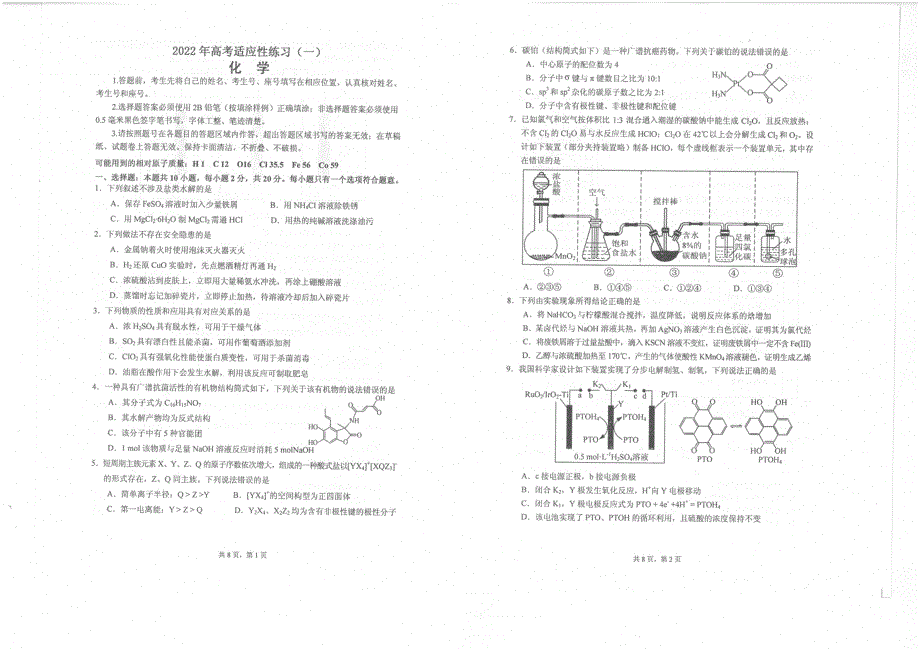 2022 年高考适应性练习（一）
化 学
1.答题前，考生先将自己的姓名、考生号、座号填写在相应位置，认真核对姓名、
考生号和座号。
2.选择题答案必须使用 2B 铅笔（按填涂样例）正确填涂；非选择题答案必须使用
0.5 毫米黑色签字笔书写，字体工整、笔迹清楚。
3.请按照题号在各题目的答题区域内作答，超出答题区域书写的答案无效；在草稿
纸、试题卷上答题无效。保持卡面清洁，不折叠、不破损。
可能用到的相对原子质量：H 1 C 12 O16 Cl 35.5 Fe 56 Co 59
一、选择题：本题共 10 小题，每小题 2 分，共 20 分。每小题只有一个选项符合题意。
1. 下列叙述不涉及盐类水解的是
A．保存 FeSO₄ 溶液时加入少量铁屑 B．用 NH₄Cl 溶液除铁锈
C．用 MgCl₂·6H₂O 制 MgCl₂ 需通 HCl D．用热的纯碱溶液洗涤油污
2．下列做法不存在安全隐患的是
A．金属钠着火时使用泡沫灭火器灭火
B．H₂ 还原 CuO 实验时，先点燃酒精灯再通 H₂
C．浓硫酸沾到皮肤上，立即用大量稀氨水冲洗，再涂上硼酸溶液
D．蒸馏时忘记加碎瓷片，立即停止加热，待溶液冷却后加入碎瓷片
3．下列物质的性质和应用具有对应关系的是
A．浓 H₂SO₄ 具有脱水性，可用于干燥气体
B．SO₂ 具有漂白性且能杀菌，可用作葡萄酒添加剂
C．ClO₂ 具有强氧化性能使蛋白质变性，可用于杀菌消毒
D．油脂在酸作用下会发生水解，利用该反应可制取肥皂
4．一种具有广谱抗菌活性的有机物结构简式如下，下列关于该有机物的说法错误的是
A．其分子式为 C₁₆H₁₅NO₇
B．其水解产物均为反式结构
C．该分子中有 5 种官能团
D．1 mol 该物质与足量 NaOH 溶液反应时消耗 5 molNaOH
5．短周期主族元素 X、Y、Z、Q 的原子序数依次增大，组成的一种酸式盐以[YX₄]⁺[XQZ₃]⁻
的形式存在，Z、Q 同主族。下列说法错误的是
A．简单离子半径：Q＞Z＞Y B．[YX₄]⁺的空间构型为正四面体
C．第一电离能：Y＞Z＞Q D．Y₂X₄、X₂Z₂ 均为含有非极性键的极性分子
共 8 页，第 1 页
6．碳铂（结构简式如下）是一种广谱抗癌药物。下列关于碳铂的说法错误的是
A．中心原子的配位数为 4
B．分子中 σ 键与 π 键数目之比为 10:1
C．sp³ 和 sp² 杂化的碳原子数之比为 2:1
D．分子中含有极性键、非极性键和配位键
H₃N
Pt
H₃N
O
O
O
O
7．已知氯气和空气按体积比 1:3 混合通入潮湿的碳酸钠中能生成 Cl₂O，且反应放热；
不含 Cl₂ 的 Cl₂O 易与水反应生成 HClO；Cl₂O 在 42℃以上会分解生成 Cl₂ 和 O₂。设
计如下装置（部分夹持装置略）制备 HClO，每个虚线框表示一个装置单元，其中存
在错误的是
浓
盐酸
空气
搅拌棒
MnO₂
饱和
食盐水
含水
8%的
碳酸钠
足量
四氯
化碳
水
多孔
球泡
① ② ③ ④ ⑤
A．②③⑤ B．①④⑤ C．①②④ D．①③④
8．下列由实验现象所得结论正确的是
A．将 NaHCO₃ 与柠檬酸混合搅拌，温度降低，说明反应体系的焓增加
B．某卤代烃与 NaOH 溶液共热，再加 AgNO₃ 溶液产生白色沉淀，证明其为氯代烃
C．将废铁屑溶于过量盐酸中，滴入 KSCN 溶液不变红，证明废铁屑中一定不含 Fe(III)
D．乙醇与浓硫酸加热至 170℃，产生的气体使酸性 KMnO₄ 溶液褪色，证明生成乙烯
9．我国科学家设计如下装置实现了分步电解制氢、制氧，下列说法正确的是
K₂ K₁
RuO₂/IrO₂-Ti a b c d Pt/Ti
Y
PTOH₄ PTOH₄
PTO PTO
0.5 mol·L⁻¹H₂SO₄溶液
PTO PTOH₄
A．c 接电源正极，b 接电源负极
B．闭合 K₂，Y 极发生氧化反应，H⁺向 Y 电极移动
C．闭合 K₁，Y 极电极反应式为 PTO + 4e⁻ +4H⁺ = PTOH₄
D．该电池实现了 PTO、PTOH 的循环利用，且硫酸的浓度保持不变
共 8 页，第 2 页